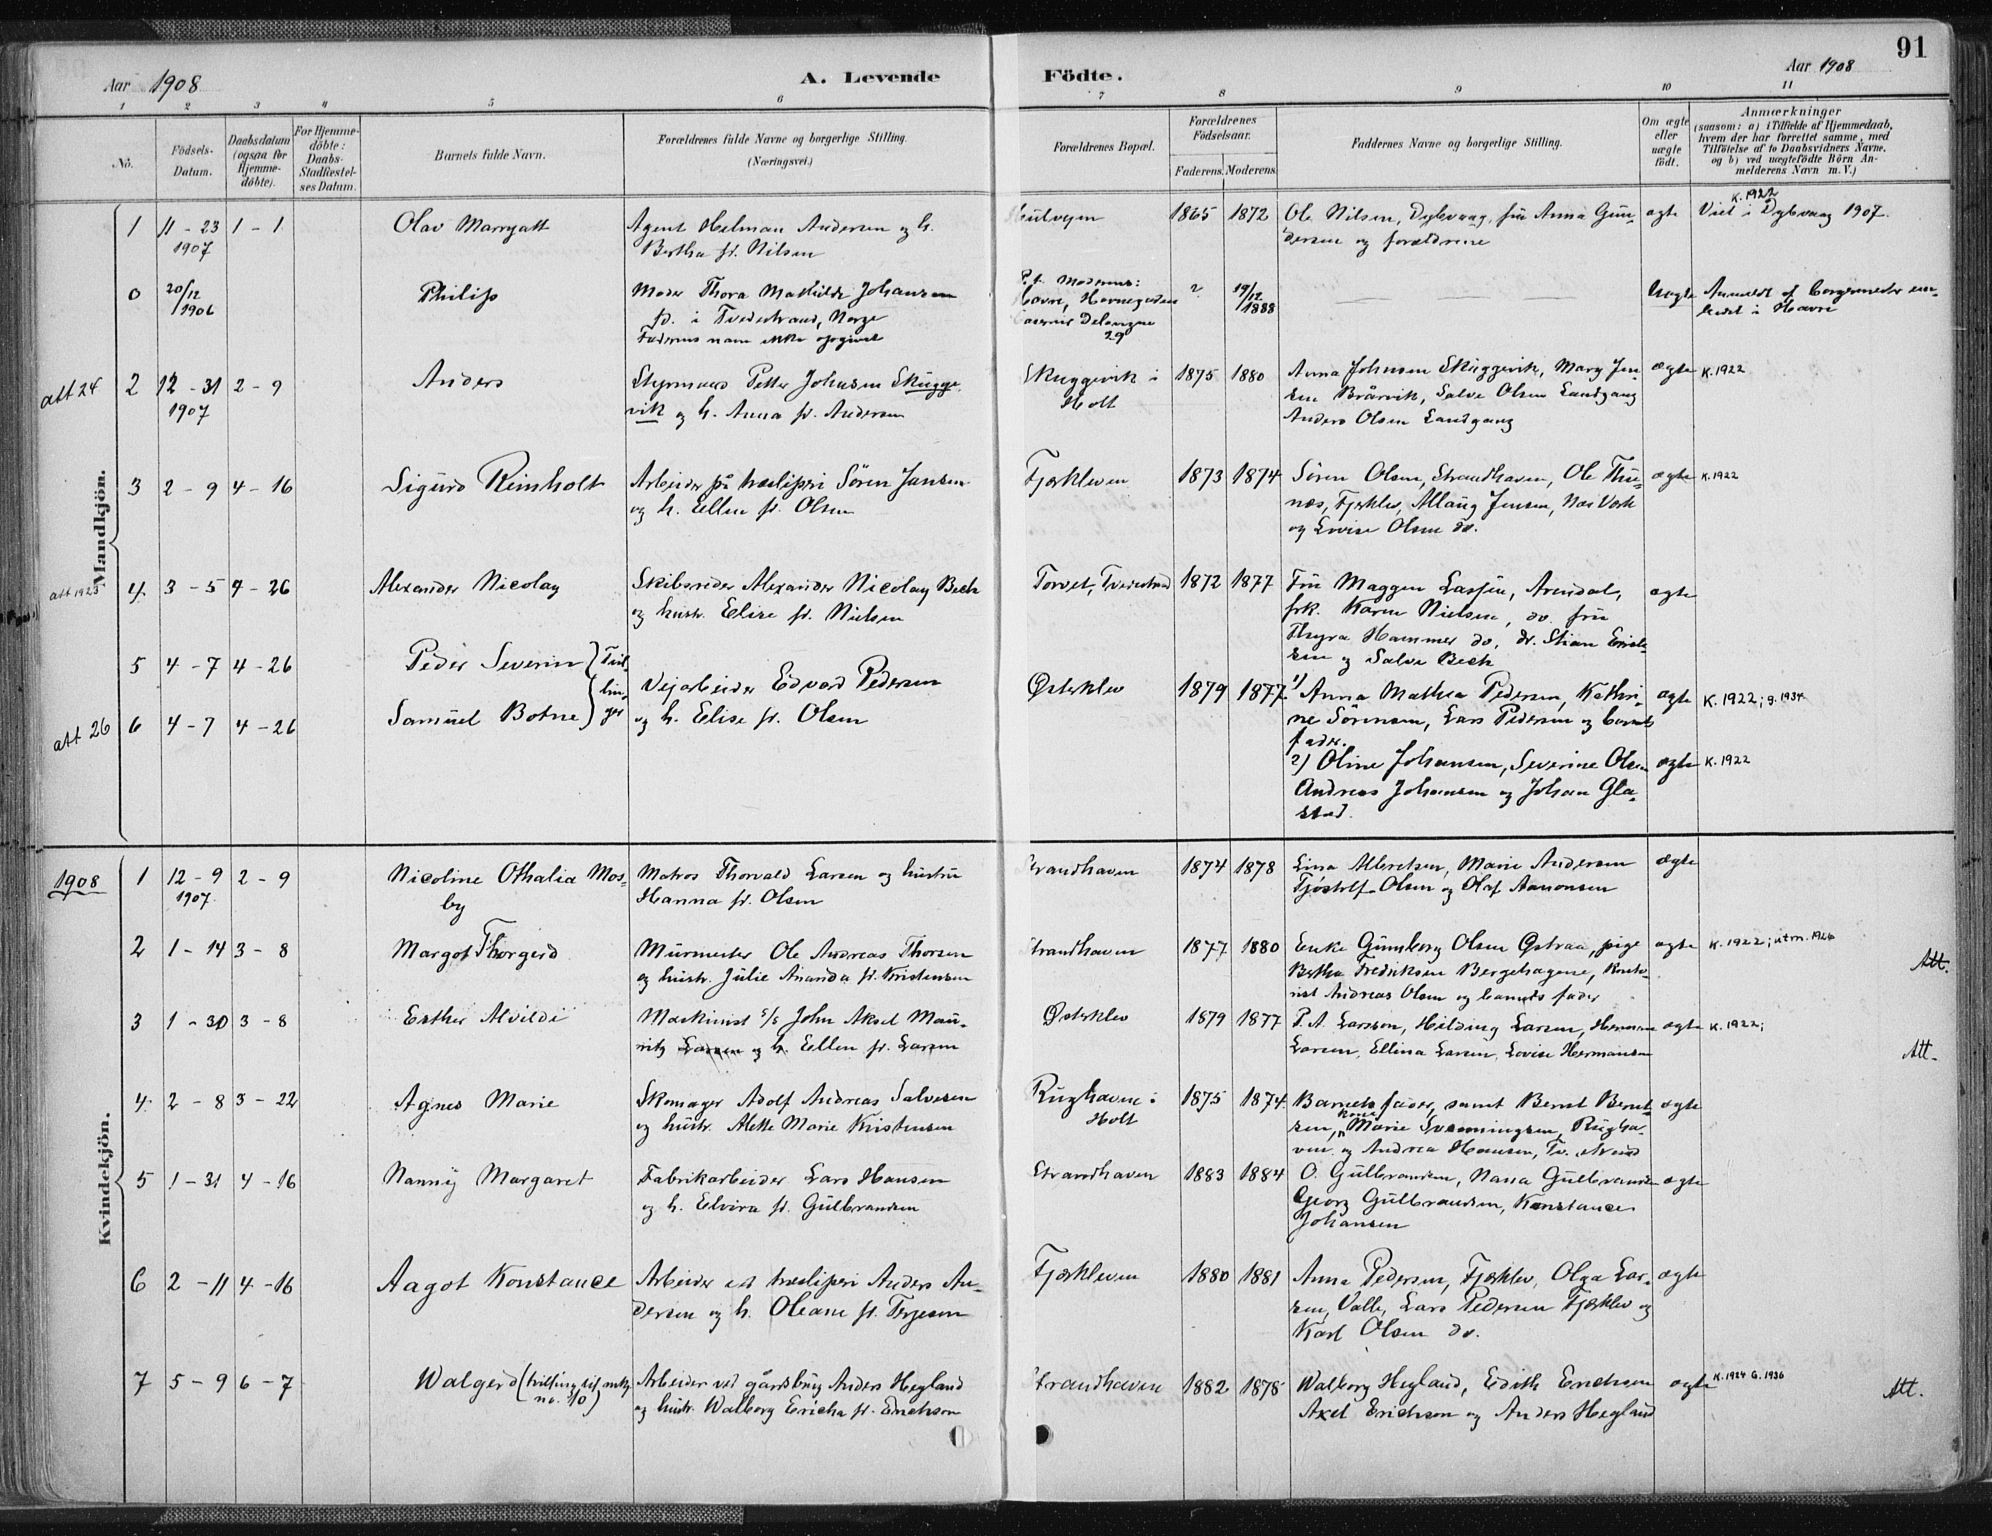 91
Aar 1908
A. Levende Födte.
Aar 1908
1 2 3 4 5 6 7 8 9 10 11
No.
Födsels-Datum.
Daabsdatum (ogsaa for Hjemme-döbte).
For Hjemme-döbte: Daabs-Stadfæstel-ses Datum.
Barnets fulde Navn.
Forældrenes fulde Navne og borgerlige Stilling. (Næringsvei.)
Forældrenes Bopæl.
Forældrenes Födselsaar.
Faderens. Moderens.
Faddernes Navne og borgerlige Stilling.
Om ægte eller uægte födt.
Anmærkninger
(saasom: a) i Tilfælde af Hjemmedaab, hvem der har forrettet samme, med Tilföielse af to Daabsvidners Navne, og b) ved uægtefödte Börn Anmelderens Navn m. V.)
Mandkjön.
1 11-23 1907 1-1 Olav Marryatt
Agent Helman Andersen og h.
Bertha f. Nilsen
1865 1872
Ole Nilsen, Dybvaag, frü Anna Gün-
dersen og forældrene
ægte
K. 1922
Viet i Dybvaag 1907.
0 20/12 1906 Philip
Moder Thora Mathilde Johansen
fd. i Tvedestrand, Norge
Faderens navn ikke opgivet
P.t. moderens:
Havre,
29
? 19/12 1888
Uægte
Anmeldt af borgermester em-
bedet i Havre
att 24
2 12-31 1907 2-9 Anders
Styrmand Petter Johnsen Skügge-
vik og h. Anna f. Andersen
Skuggevik i
Holt
1875 1880
Anna Johnsen Skuggevik, Mary Jen-
sen Bråvik, Salve Olsen Landgang
Anders Olsen Landgang
ægte K. 1922
3 2-9 4-16 Sigurd Reinholt
Arbeider på træsliperi Sören Jansen
og h. Ellen f. Olsen
Fjærkleven
1873 1874
Sören Olsen, Strandhaven, Ole Thü-
næs, Fjærklev, Allaug Jensen, Næs Værk
og Lovise Olsen do.
ægte K. 1922
att 1923
4. 3-5 4-26 Alexander Nicolay
Skibsreder Alexander Nicolay Bech
og hustr. Elise f. Nielsen
Torvet, Tvedestrand
1872 1877
Frü Maggen Lassen, Arendal,
frk. Karen Nielsen, do. frü
Thyra Hammer do, dr. Stian Erich-
sen og Salve Bech
ægte
5 4-7 4-26 Peder Severin
att 26
6 4-7 4-26 Samüel Botne
Tvil-
lin-
ger
Vejarbeider Edvard Pedersen
og h. Elise f. Olsen
Østerklev
1879 1877
1) Anna Mathea Pedersen, Kathri-
ne Sörensen, Lars Pedersen og barnets
fader.
ægte K. 1922; g. 1934
2) Oline Johansen, Severine Olsen
Andreas Johansen og Johan Gla-
stad.
ægte K. 1922
1908
Kvindekjön.
1 12-9 1907 2-9 Nicoline Othalia Mos-
by
Matros Thorvald Larsen og hustru
Hanna f. Olsen
Strandhaven
1874 1878
Lina Albretsen, Marie Andersen
Tjöstolf Olsen og Olaf Aanonsen
ægte
2 1-14 3-8 Margot Thorgerd
Mürmester Ole Andreas Thorsen
og hustr. Julie Ananda f. Kristensen
Strandhaven
1877 1880
Enke Günnborg Olsen Østraa, pige
Bertha Fredriksen Bergehagene,
Andreas Olsen og barnets fader
ægte K. 1922; utm. 1926
Att.
3 1-30 3-8 Esther Alvilde
Maskinist s/s John Aksel Mau-
ritz Larsen og h. Ellen f. Larsen
Østerklev
1879 1877
P. A. Larsson, Hilding Larsen, Herman
Larsen, Ellina Larsen, Lovise Hermansen
ægte K. 1922;
Att.
4. 2-8 3-22 Agnes Marie
Skomager Adolf Andreas Salvesen
og hustr. Alette Marie Kristensen
Rüghavne i
Holt
1875 1874
Barnets fader, samt Bernt Bernt-
sen, kone Marie Svenningsen, Rügha-
ven og Andrea Hansen, Tv. strand
ægte
5 1-31 4-16 Nanny Margaret
Fabrikarbeider Lars Hansen
og h. Elvira f. Gülbrandsen
Strandhaven
1883 1884
O. Gülbrandsen, Nana Gülbrandsen
Georg Gülbrandsen, Konstance
Johansen
ægte
6 2-11 4-16 Aagot Konstance
Arbeider ved træsliperi Anders An-
dersen og h. Oleane f. Terjesen
Fjærkleven
1880 1881
Anna Pedersen, Fjærklev, Olga Lar-
sen, Valle, Lars Pedersen Fjærklev og
Karl Olsen do.
ægte
7 5-9 6-7 Walgerd (tvilling til mk
no. 10)
Arbeider ved gårdsbrüg Anders Hegland
og hustr. Walborg Ericha f. Erichson
Strandhaven
1882 1878
Walborg Hegland, Edith Erichson
Axel Erichson og Anders Hegland
ægte K. 1924 G. 1936
Att.